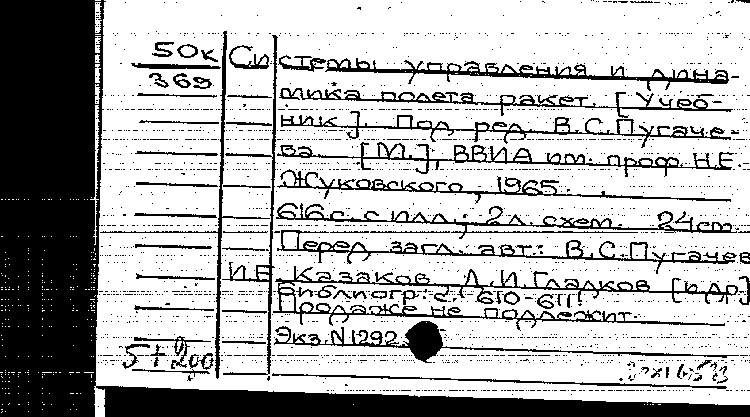 50к Системы управления и дина-
369 мика полета ракет. [Учеб-
ник]. Под ред. В.С.Пугаче-
ва. [М.], ВВИА им. проф. Н.Е.
Жуковского, 1965.
616 с. с илл.; 2 л. схем. 24 cm.
Перед загл. авт.: В.С.Пугачев
И.Е. Казаков, Л.И.Гладков [и др.]
Библиогр.: с. 610-611.
Продаже не подлежит.
Экз. N1292
5+200